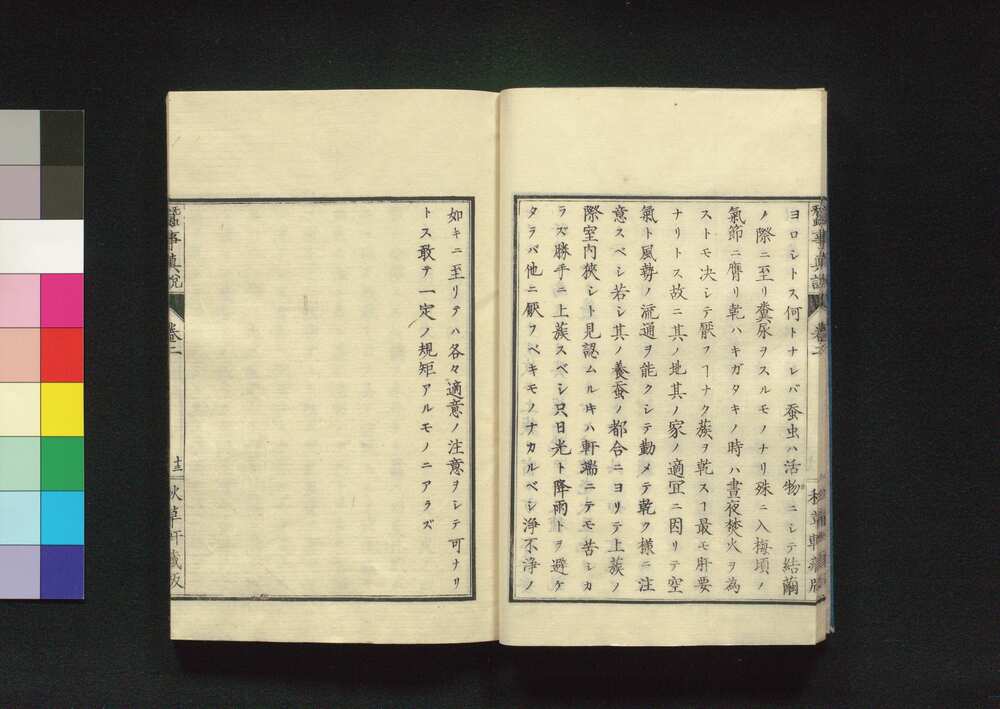 ヨロシトス何トナレバ蚕虫ハ活物ニシテ結繭
ノ際ニ至リ糞尿ヲスルモノナリ殊ニ入梅頃ノ
氣節ニ膺リ乾ハキガタキノ時ハ晝夜焚火ヲ為
ストモ决シテ厭フヿナク蔟ヲ乾スヿ最モ肝要
ナリトス故ニ其ノ地其ノ家ノ適宜ニ因リテ空
氣ト風勢ノ流通ヲ能クシテ勤メテ乾ク様ニ注
意スベシ若シ其ノ養蚕ノ都合ニヨリテ上蔟ノ
際室内狹シト見認ムルキハ軒端ニテモ苦シカ
ラズ勝手ニ上蔟スベシ只日光ト降雨トヲ避ケ
タラバ他ニ厭フベキモノナカルベシ浄不浄ノ
如キニ至リテハ各々適意ノ注意ヲシテ可ナリ
トス敢テ一定ノ規矩アルモノニアラズ
蠶事眞説
卷二
十三
秋草軒藏版